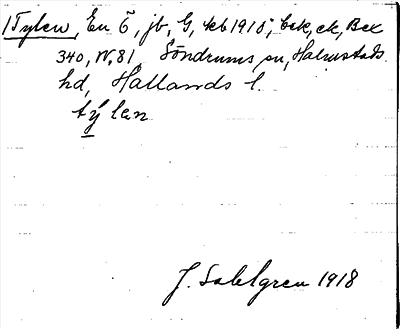 1 Tylen, En Ö, jb, G, kb 1915; bek, ek, Bex
340, N, 81, Söndrums sn, Halmstads
hd, Hallands l.
tylen
J. Sahlgren 1918